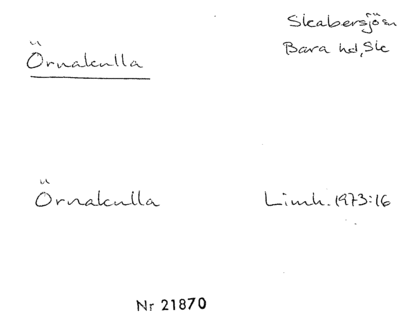 Skabersjö sn
Bara hd, Sk
Örnakulla
Örnakulla
Limh. 1973:16
Nr 21870